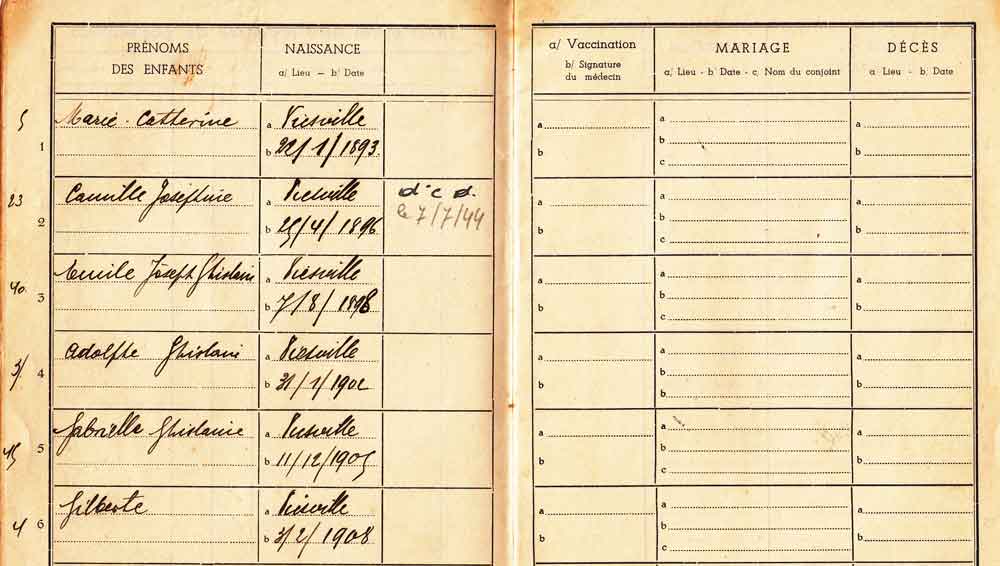 PRÉNOMS
DES ENFANTS
NAISSANCE
a/ Lieu – b/ Date
a/ Vaccination
b/ Signature
du médecin
MARIAGE
a/ Lieu - b/ Date - c/ Nom du conjoint
DÉCÈS
a/ Lieu - b/ Date
5
1
Marie-Catherine
a Viesville
b 22/1/1893
a
b
a
b
c
a
b
23
2
Camille Joséphine
a Viesville
b 25/4/1896
d.c.d.
le 7/7/44
a
b
a
b
c
a
b
40
3
Emile Joseph Ghislain
a Viesville
b 7/8/1898
a
b
a
b
c
a
b
4
Adolphe Ghislain
a Viesville
b 31/1/1902
a
b
a
b
c
a
b
15
5
Gabrielle Ghislaine
a Viesville
b 11/12/1905
a
b
a
b
c
a
b
4
6
Gilberte
a Viesville
b 3/2/1908
a
b
a
b
c
a
b